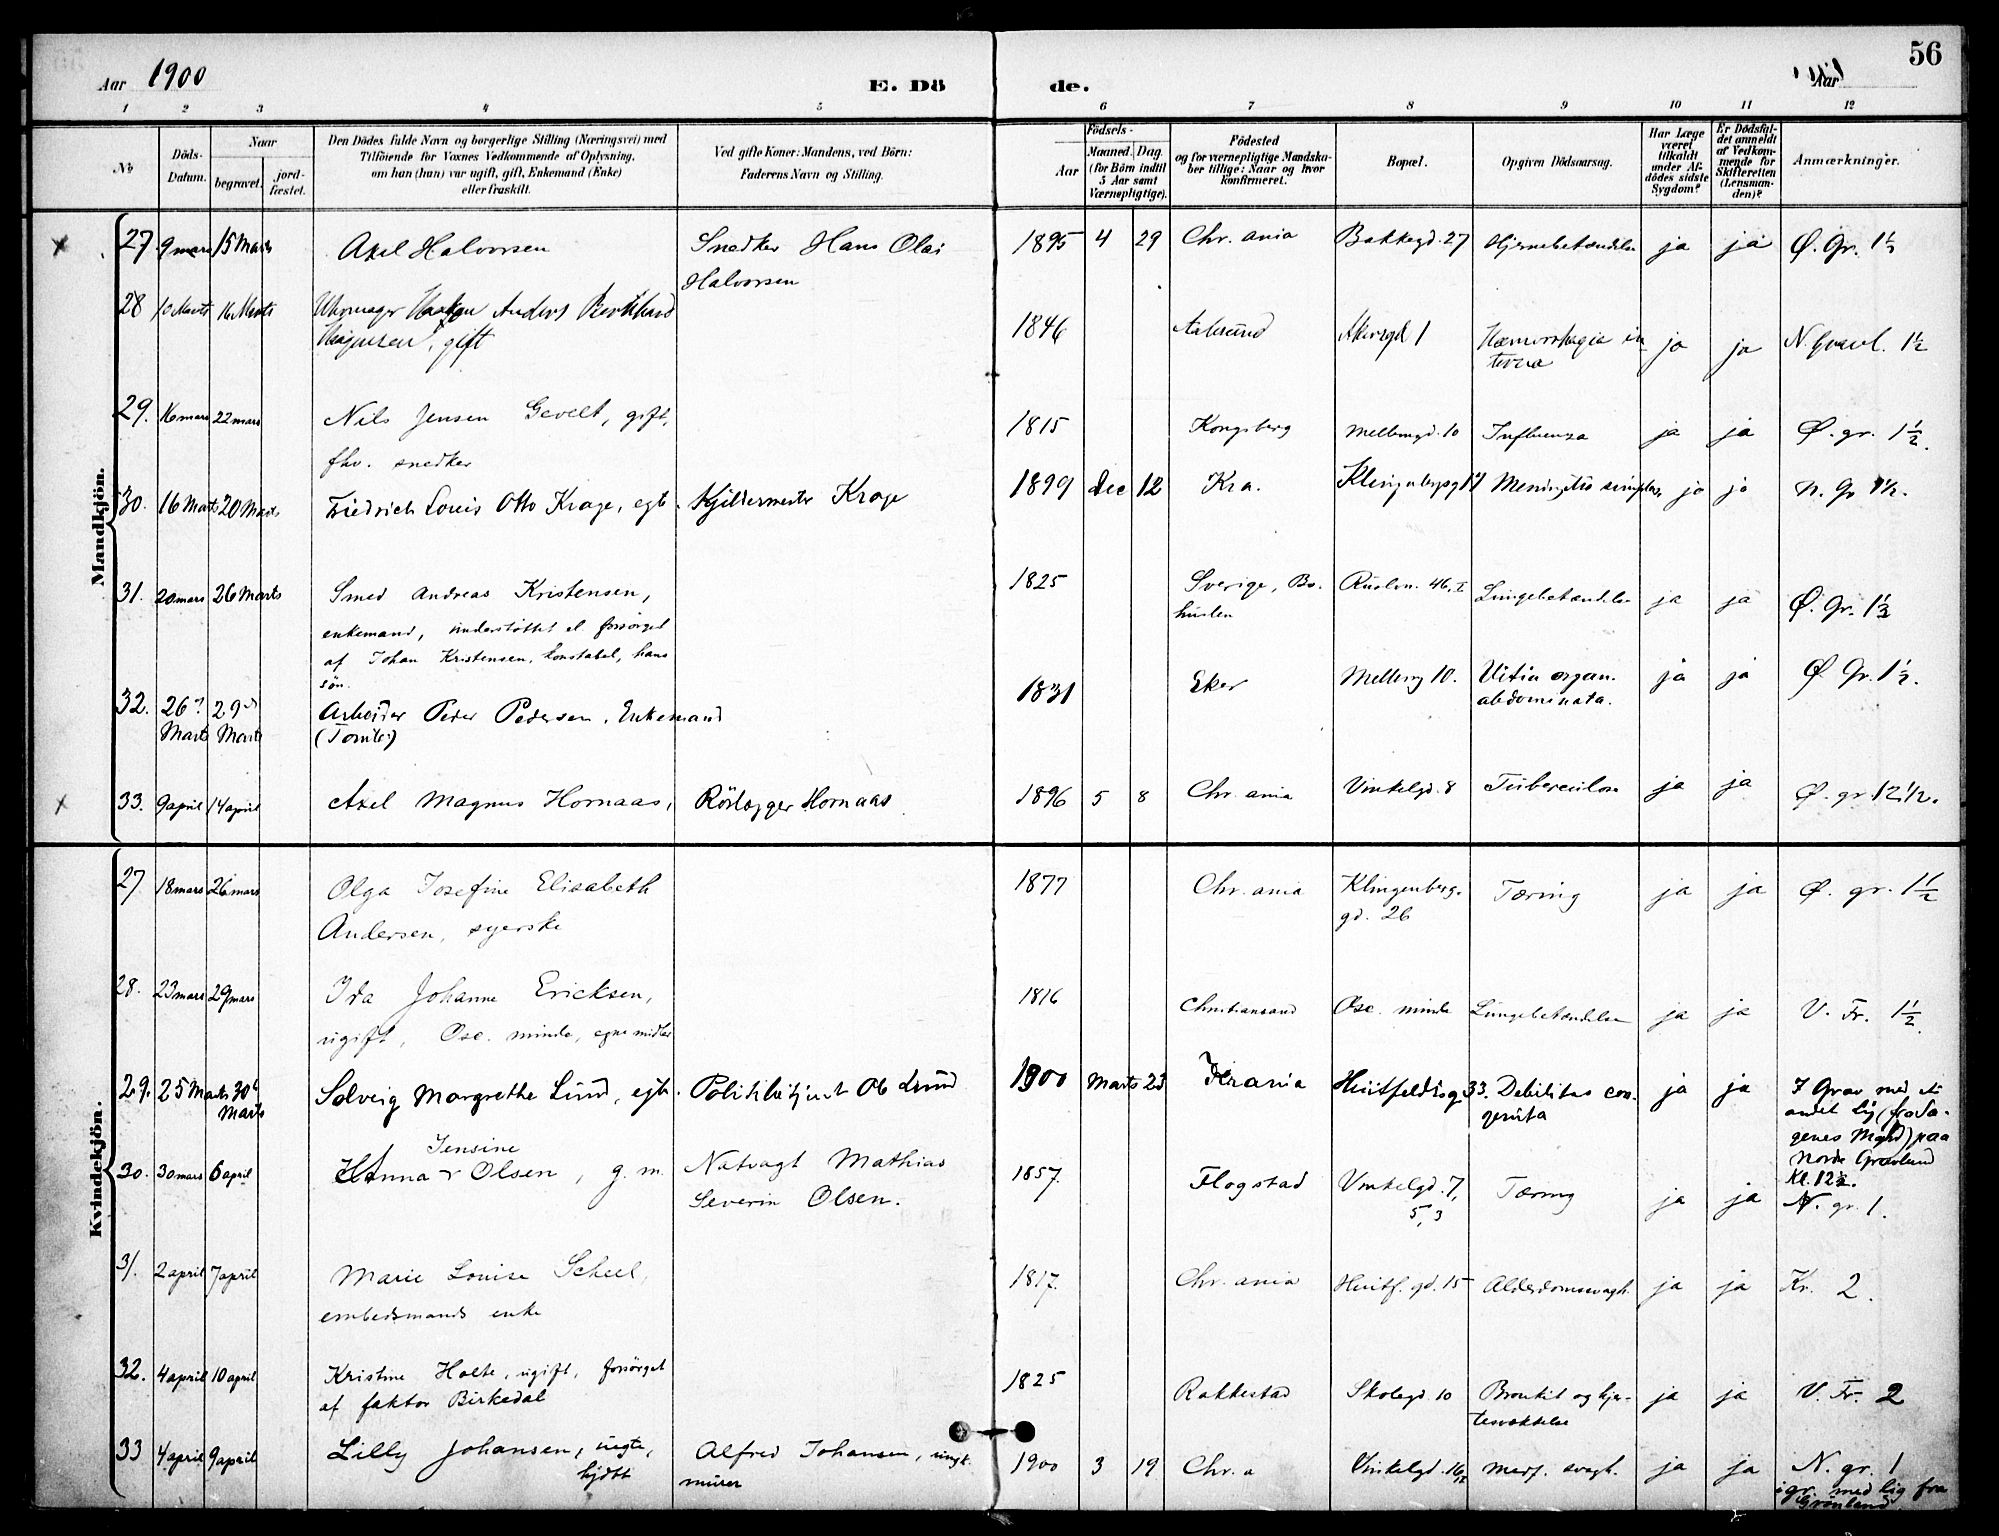 56
Aar 1900 E. Dö de. Aar
1 2 3 4 5 6 7 8 9 10 11 12
No Döds-Datum. Naar begravet. jord-fæstet. Den Dödes fulde Navn og borgerlige Stilling (Næringsvei) med Tilföiende for Voxnes Vedkommende af Oplysning, om han (hun) var ugift, gift, Enkemand (Enke) eller fraskilt. Ved gifte Koner: Mandens, ved Börn: Faderens Navn og Stilling. Födsels- Aar Maaned. Dag (for Börn indtil 5 Aar samt Værnepligtige). Födested og for værnepligtige Mandskaber tillige: Naar og hvor konfirmeret. Bopæl. Opgiven Dödsaarsag. Har Læge været tilkaldt under Afdödes sidste Sygdom? Er Dödsfaldet anmeldt af Vedkommende for Skifteretten (Lensmanden)? Anmærkninger.
Mandkjön.
27. 9 mars 15 Marts Axel Halvorsen Snedker Hans Olai 1895 4 29 Chr.ania Bakkegd. 27 Hjernebetændelse ja ja Ø. Gr. 1½
Halvorsen
28 10 Marts 16 Marts Uhrmager Anders gift 1846 Aalesund Akersgd 1 Hæmorrhagia in ja ja N. Gravl. 1½
terna
29. 16 mars 22 mars Nils Jensen Gevelt, gift, 1815 Kongsberg Mellemgd. 10 Influenza ja ja Ø. gr. 1½.
fhv. snedker
30. 16 Marts 20 Marts Friedrich Louis Otto Krage, egt. Kjeldermester Krage 1899 Dec 12 Kra. Meningitis simplex ja ja N. Gr 1½.
31. 20 mars 26 Marts Smed Andreas Kristensen, 1825 Sverige, Bo- 46, I Lungebetændelse ja ja Ø. Gr. 1½
enkemand, understöttet el. forsörget huslen
af Johan Kristensen, konstabel, hans
sön.
32. 26 Marts 29 Marts Arbeider Peder Pedersen. Enkemand 1831 Eker Mellemg 10. Vitia organ. ja ja Ø Gr. 1½.
abdominata.
33. 9 april 14 april Axel Magnus Hornaas, Rörlægger Hornaas 1896 5 8 Chr.ania Vinkelgd. 8 Tuberculose ja ja Ø. gr 12½.
Kvindekjön.
27. 18 mars 26 mars Olga Josefine Elisabeth 1877 Chr.ania Klingenberg- Tæring ja ja Ø. gr. 1½
Andersen, syerske gd. 26
28. 23 mars 29 mars Ida Johanne Ericksen, 1816 Christiansand Osc. minde Lungebetændelse ja ja V. Fr. 1½.
ugift, Osc. minde, egne midler
29. 25 Marts 30 Marts Solveig Margrethe Lund, egte. Politibetjent Ob Lund 1900 Marts 23 Krania Huitfeldtsg 33. Debilitas con- ja ja I Grav med et
genita andet Lig (fra Sa-
genes Mghd) paa
Nordre Gravlund
Kl. 12½.
30. 30 mars 6 april Anna Jensine Olsen, g. m. Natvagt Mathias 1857. Flogstad Vinkelgd. 7, Tæring ja ja N. gr. 1.
Severin Olsen. 5, 3
31. 2 april 7 april Marie Louise Scheel, 1817. Chr.ania Huitf. gd. 15 Alderdomssvagh. ja ja Kr. 2.
embedsmands enke
32. 4 april 10 april Kristine Holte, ugift, forsörget 1825 Rakkestad Skolegd. 10 Bronkit og hjer- ja ja V. Fr. 2
af faktor Birkedal tesvækkelse
33 4 april 9 april Lilly Johansen, uegte, Alfred Johansen, ungk. 1900 3 19 Chr.a Vinkelgd. 16 Medf. svagh. ja ja N. gr. 1
hjdöt murer i gr. med lig fra
Grönland